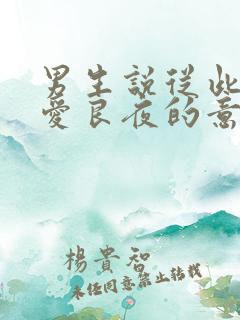 男生說從此
愛良夜的意
楊貴智
未經同意禁止轉載